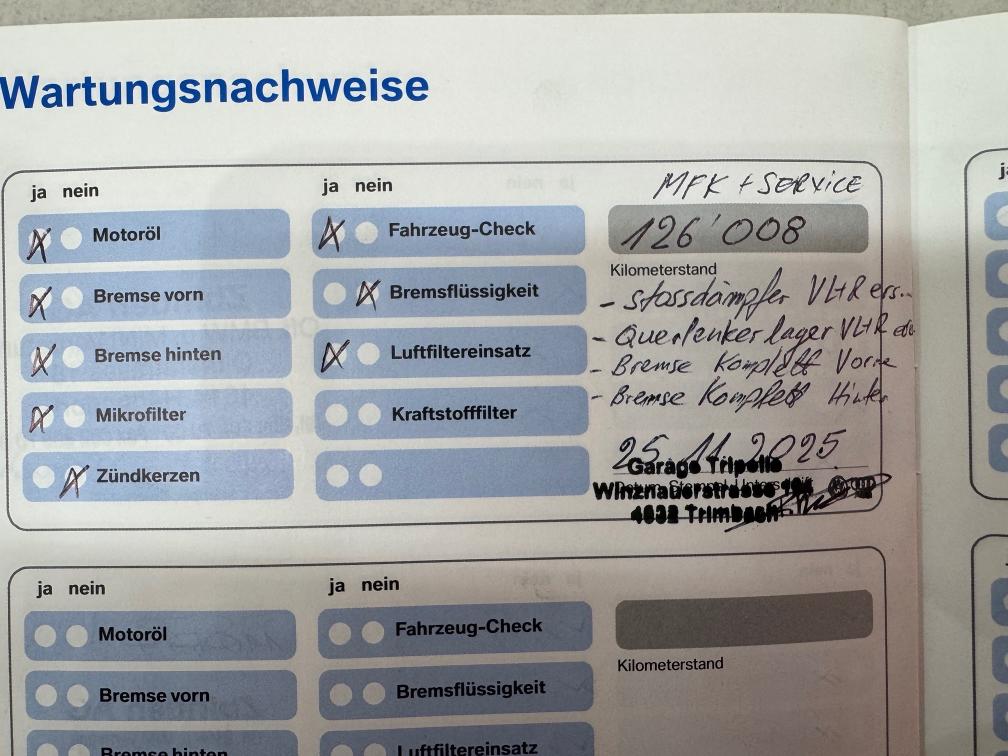 Wartungsnachweise
ja nein
ja nein
MFK + SERVICE
Motoröl
Fahrzeug-Check
126'008
Kilometerstand
Bremse vorn
Bremsflüssigkeit
- Stossdämpfer V L+R ers..
Bremse hinten
Luftfiltereinsatz
- Querlenkerlager V L+R
- Bremse Komplett Vorne
Mikrofilter
Kraftstofffilter
- Bremse Komplett Hinten
Zündkerzen
25. 11. 2025
Garage Tripolie
Winznauerstrasse
4632 Trimbach
ja nein
ja nein
Motoröl
Fahrzeug-Check
Kilometerstand
Bremse vorn
Bremsflüssigkeit
Bremse hinten
Luftfiltereinsatz